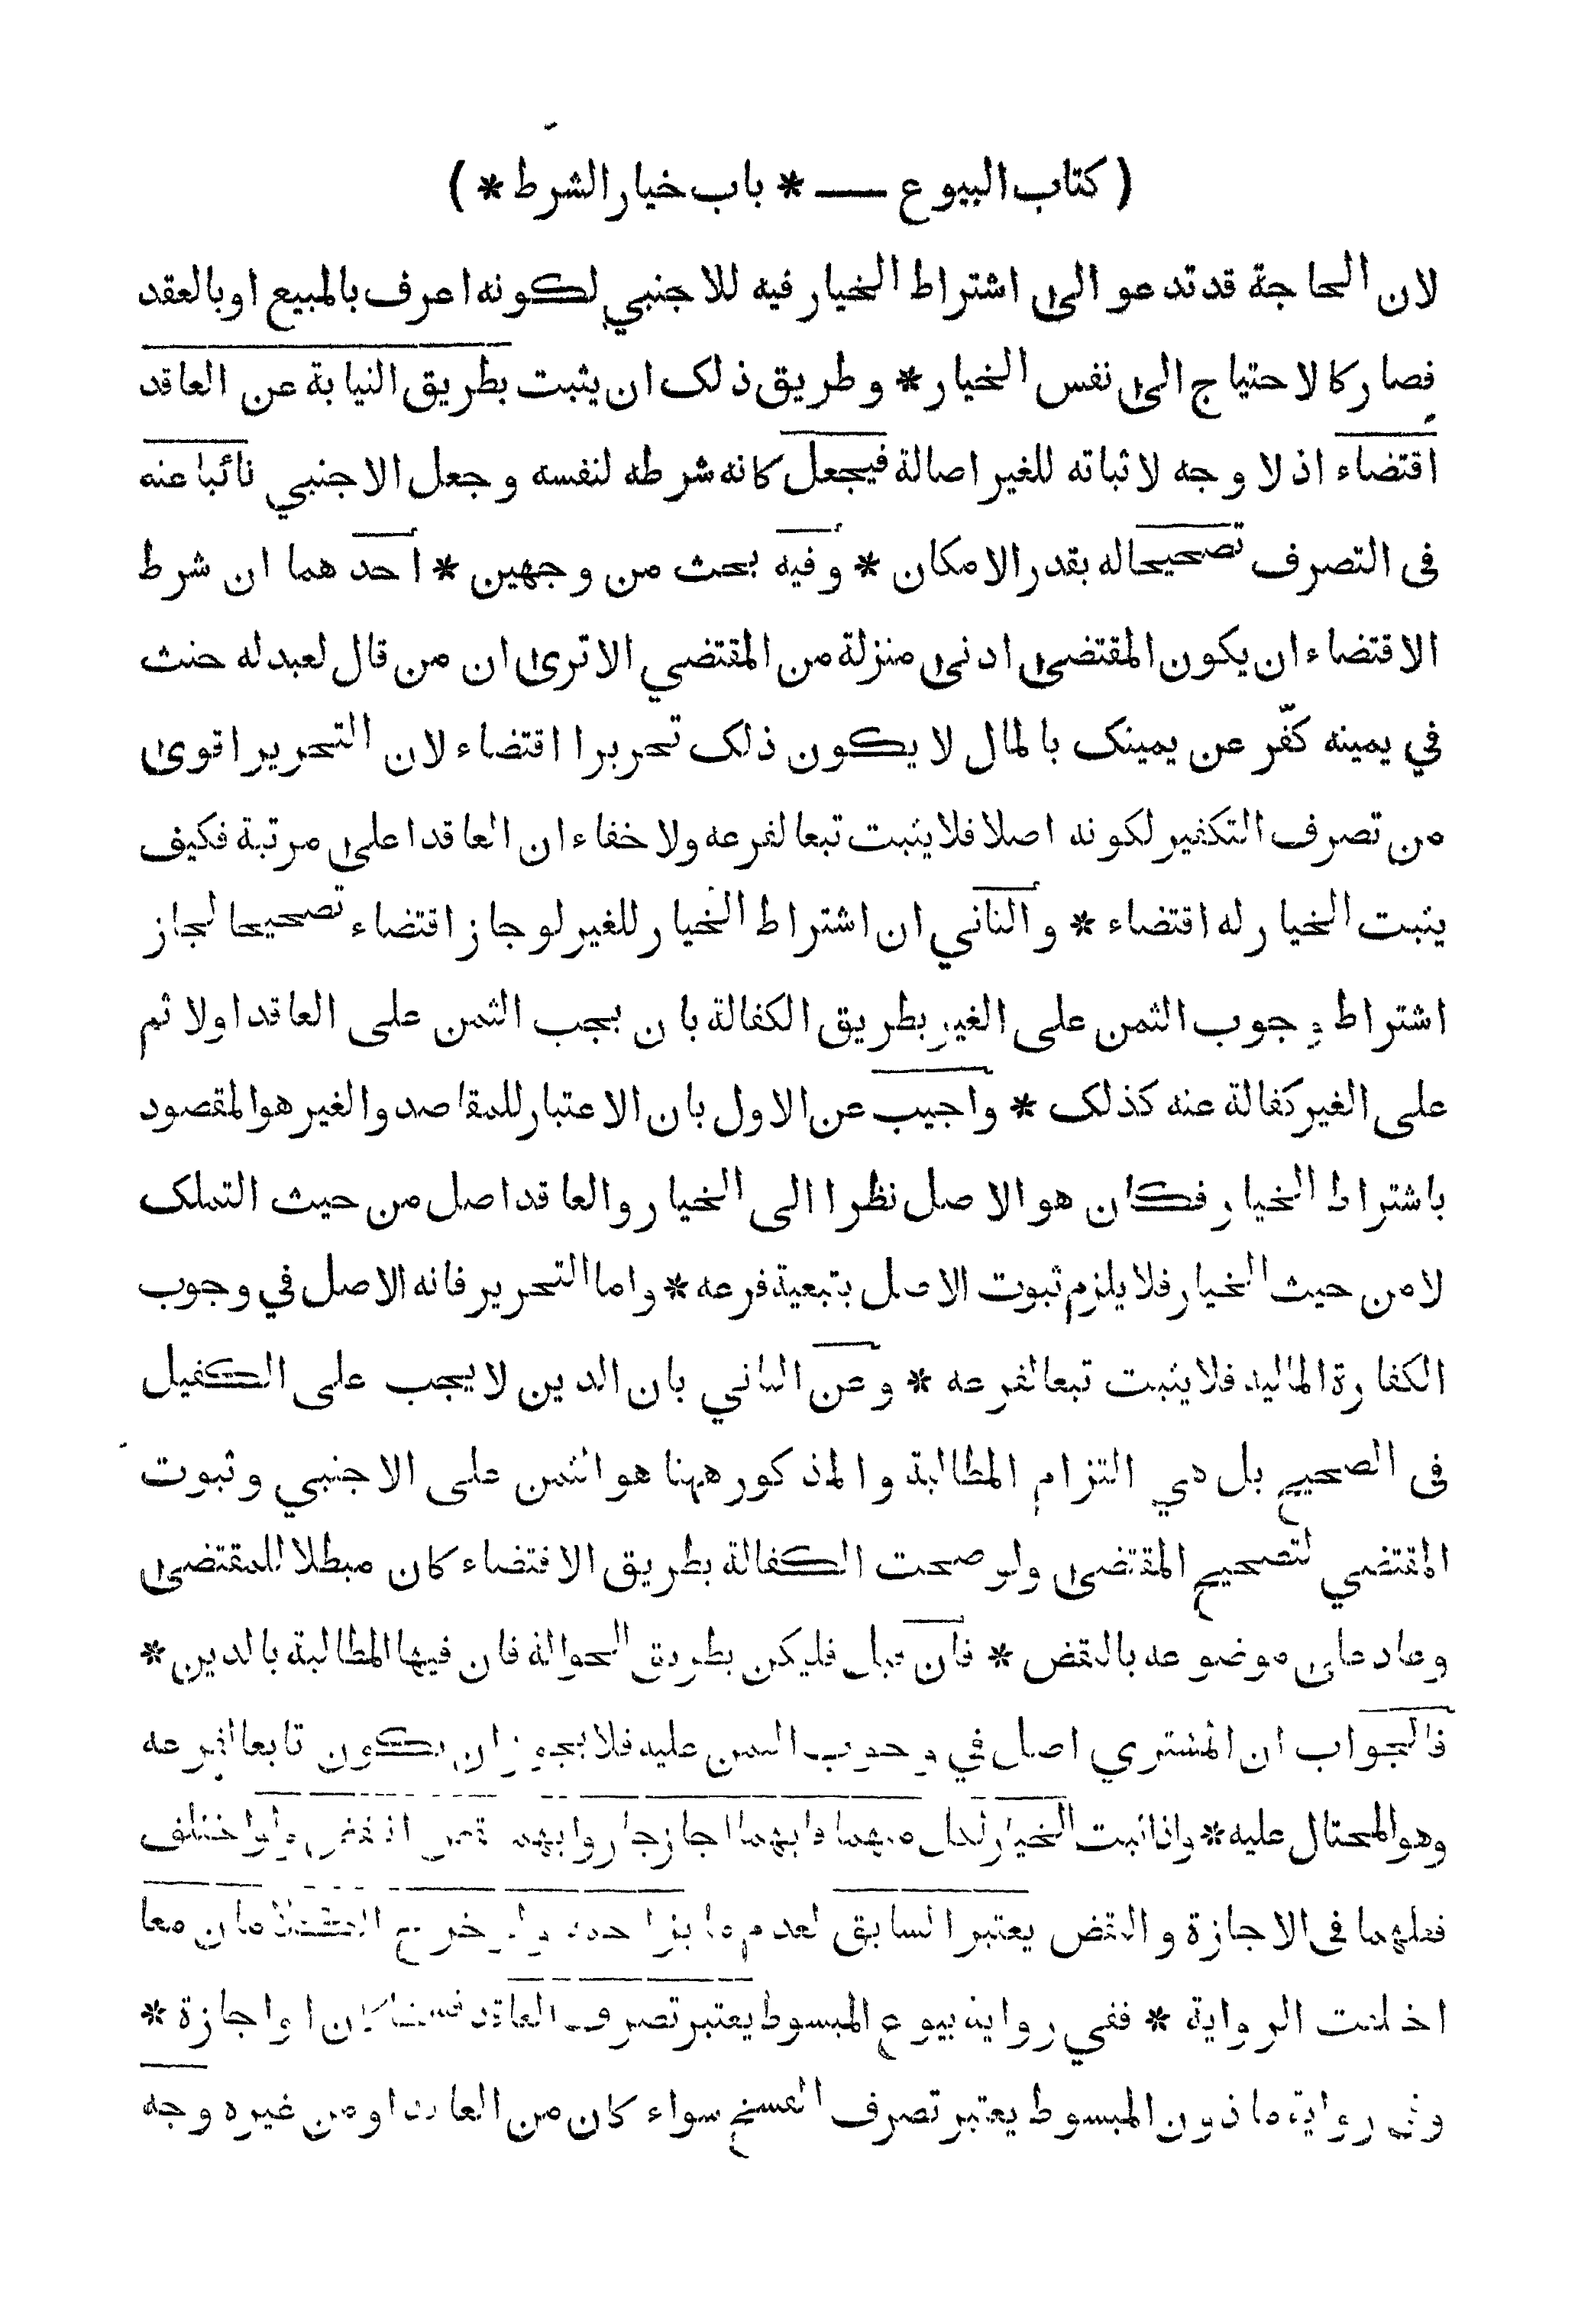 ( كتاب البيوع — * باب خيار الشرط * )
لان الحاجة قد تدعو الى اشتراط الخيار فيه للاجنبي لكونه اعرف بالمبيع او بالعقد
فصار كالاحتياج الى نفس الخيار * وطريق ذلك ان يثبت بطريق النيابة عن العاقد
اقتضاء اذ لا وجه لاثباته للغير اصالة فيجعل كانه شرطه لنفسه وجعل الاجنبي نائبا عنه
فى التصرف تصحيحا له بقدر الامكان * وفيه بحث من وجهين * احدهما ان شرط
الاقتضاء ان يكون المقتضى ادنى منزلة من المقتضي الا ترى ان من قال لعبد له حنث
في يمينه كفّر عن يمينك بالمال لا يكون ذلك تحريرا اقتضاء لان التحرير اقوى
من تصرف التكفير لكونه اصلا فلا يثبت تبعا لفرعه ولا خفاء ان العاقد اعلى مرتبة فكيف
يثبت الخيار له اقتضاء * والثاني ان اشتراط الخيار للغير لو جاز اقتضاء تصحيحا لجاز
اشتراط وجوب الثمن على الغير بطريق الكفالة بان يجب الثمن على العاقد اولا ثم
على الغير كفالة عنه كذلك * واجيب عن الاول بان الاعتبار للمقاصد والغير هو المقصود
باشتراط الخيار فكان هو الاصل نظرا الى الخيار والعاقد اصل من حيث التملك
لا من حيث الخيار فلا يلزم ثبوت الاصل بتبعية فرعه * واما التحرير فانه الاصل في وجوب
الكفارة المالية فلا يثبت تبعا لفرعه * وعن الثاني بان الدين لا يجب على الكفيل
فى الصحيح بل هي التزام المطالبة والمذكور ههنا هو الثمن على الاجنبي وثبوت
المقتضي لتصحيح المقتضى ولو صحت الكفالة بطريق الاقتضاء كان مبطلا للمقتضى
وعاد على موضوعه بالنقض * فان قيل فليكن بطريق الحوالة فان فيها المطالبة بالدين *
فالجواب ان المشتري اصل في وجوب الثمن عليه فلا يجوز ان يكون تابعا لفرعه
وهو المحتال عليه * واذا ثبت الخيار لكل منهما فايهما اجاز جاز وايهما نقض انتقض ولو اختلف
فعلهما فى الاجازة والنقض يعتبر السابق لعدم ما يزاحمه ولو خرج الكلامان معا
اختلفت الرواية * ففي رواية بيوع المبسوط يعتبر تصرف العاقد فسخا كان او اجازة *
وفى رواية ماذون المبسوط يعتبر تصرف الفسخ سواء كان من العاقد او من غيره وجه